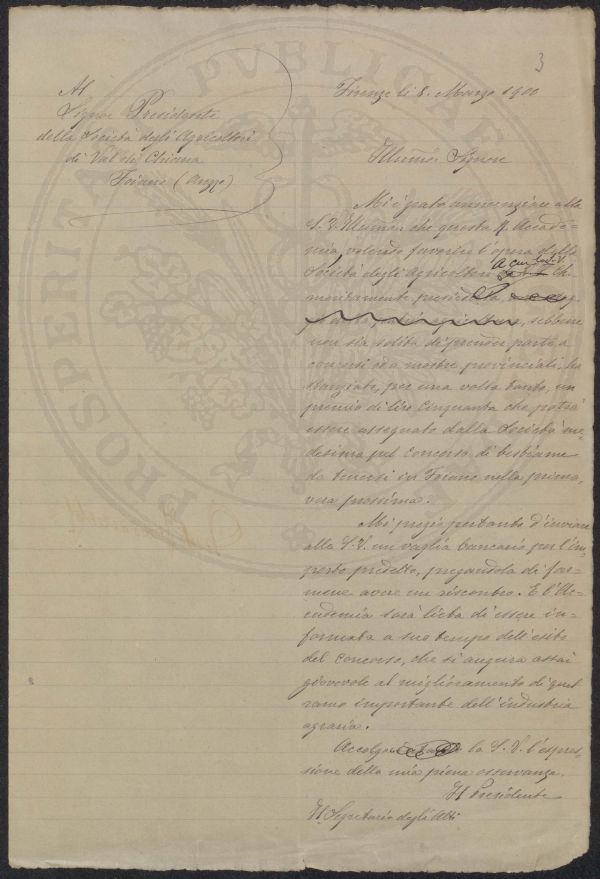 3
Al
Signor Presidente
della Società degli Agricoltori
di Val di Chiana
Foiano (Arezzo)
Firenze li 8. Marzo 1900
Illumo: Signore
Mi è grato annunziare alla
S. V. Illuma: che questa R. Accade=
mia volendo favorire l'opera della
Società degli Agricoltori
A cui la S. V.
meritamente presiede, sebbene
non sia solita di prendere parte a
concorsi od a mostre provinciali, ha
stanziato, per una volta tanto, un
premio di lire Cinquanta che potrà
essere assegnato dalla Società me=
desima pel Concorso di bestiame
da tenersi in Foiano nella prima,
vera prossima.
Mi pregio pertanto d'inviare
alla S. V. un vaglia bancario per l'im,
porto predetto, pregandola di far=
mene avere un riscontro. E l'Ac=
cademia sarà lieta di essere in=
formata a suo tempo dell'esito
del Concorso, che si augura assai
giovevole al miglioramento di quel
ramo importante dell'industria
agraria.
Accolga la S. V. l'espres=
sione della mia piena osservanza.
Il Presidente
Il Segretario degli Atti
PROSPERITATI PVBLICAE